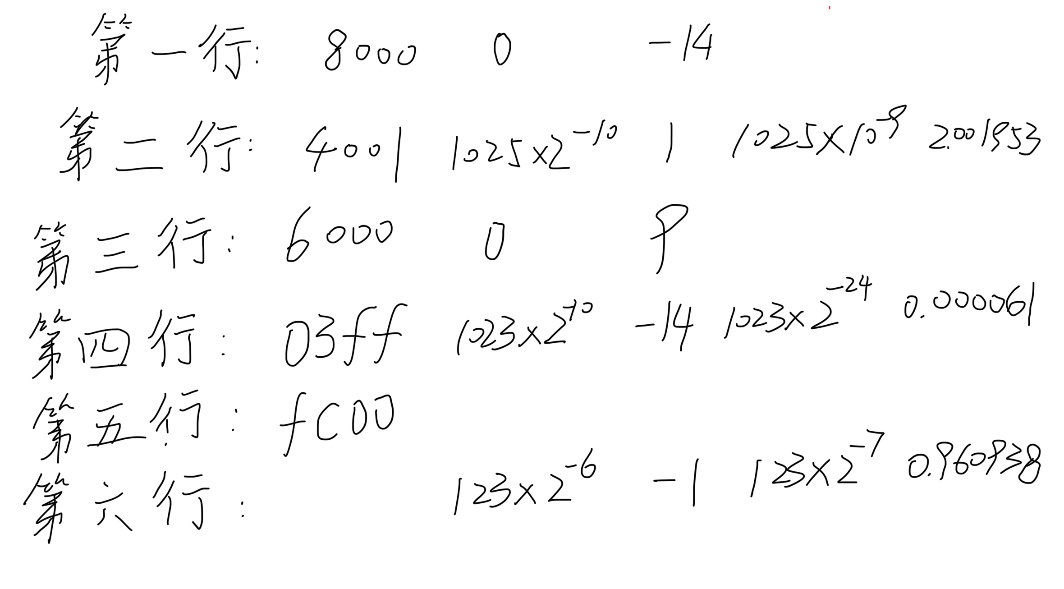 第一行: 8000 0 -14
第二行: 4001 1025×2^-10 1 1025×10^-9 2.001953
第三行: 6000 0 9
第四行: 03ff 1023×2^-10 -14 1023×2^-24 0.000061
第五行: fc00
第六行: 123×2^-6 -1 123×2^-7 0.960938